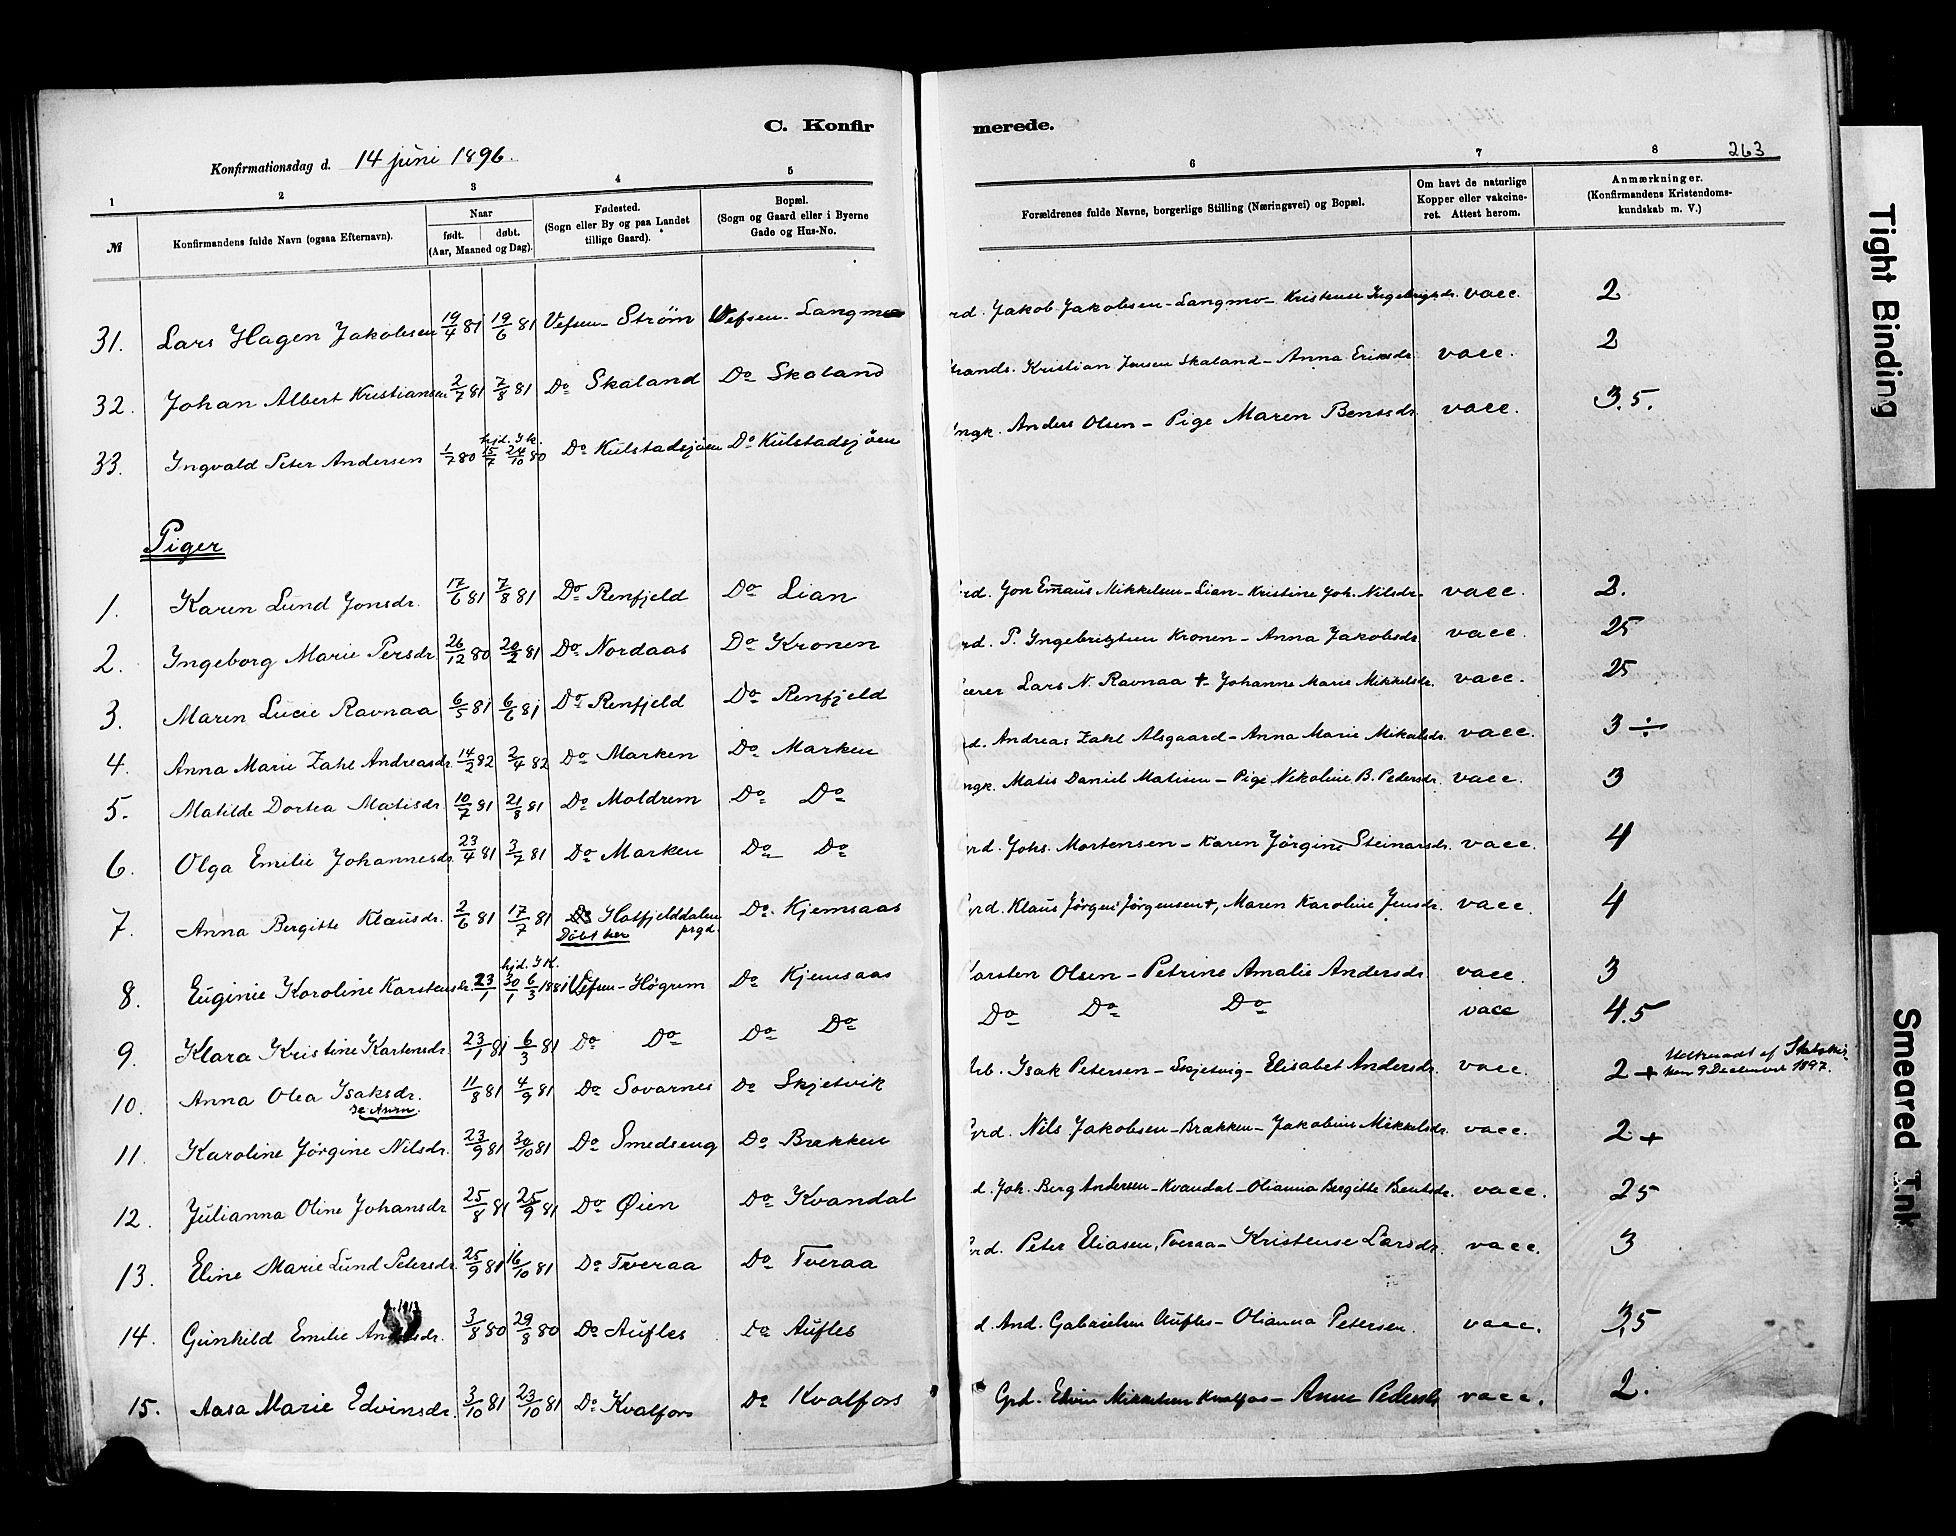 C. Konfir
Konfirmationsdag d. 14 juni 1896.
1 2 3 4 5
№ Konfirmandens fulde Navn (ogsaa Efternavn). Naar født. døbt. (Aar, Maaned og Dag). Fødested. (Sogn eller By og paa Landet tillige Gaard). Bopæl. (Sogn og Gaard eller i Byerne Gade og Hus-No.
31. Lars Hagen Jakobsen 19/4 81 19/6 81 Vefsen - Strøm Vefsen - Langmo
32. Johan Albert Kristiansen 2/7 81 7/8 81 Do Skaland Do Skaland
33. Ingvald Peter Andersen 1/7 80 hjd. 15/7 I K. 24/10 80 Do Kulstadsjøen Do Kulstadsjøen
Piger
1. Karen Lund Jonsdr. 17/6 81 7/8 81 Do Renfjeld Do Lian
2. Ingeborg Marie Persdr 26/12 80 20/2 81 Do Nordaas Do Kronen
3. Maren Lucie Ravnaa 6/5 81 6/6 81 Do Renfjeld Do Renfjeld
4. Anna Marie Zahl Andreasdr. 14/2 82 2/4 82 Do Marken Do Marken
5. Matilde Dortea Matisdr 10/7 81 21/8 81 Do Moldrem Do Do
6. Olga Emilie Johannesdr 23/4 81 3/7 81 Do Marken Do Do
7. Anna Bergitte Klausdr. 2/6 81 17/7 81 Hatfjelddalen prgd. Døbt her Do Kjemsaas
8. Euginie Karoline Karstensdr. 23/1 hjd. 30/1 I K. 6/3 1881 Vefsen - Høgrem Do Kjemsaas
9. Klara Kristine Karstensdr. 23/1 81 6/3 81 Do Do Do Do
10. Anna Olea Isaksdr. 11/8 81 4/9 81 Do Sovarnes Do Skjetvik
se Anm.
11. Karoline Jørgine Nilsdr. 23/9 81 30/10 81 Do Smedseng Do Brækken
12. Julianna Oline Johansdr 25/8 81 25/9 81 Do Øien Do Kvandal
13. Eline Marie Lund Petersdr. 25/9 81 16/10 81 Do Tveraa Do Tveraa
14. Gunhild Emilie 3/8 80 29/8 80 Do Aufles Do Aufles
15. Aasa Marie Edvinsdr. 3/10 81 23/10 81 Do Kvalfors Do Kvalfors
merede.
263
6 7 8
Forældrenes fulde Navne, borgerlige Stilling (Næringsvei) og Bopæl. Om havt de naturlige Kopper eller vakcineret. Attest herom. Anmærkninger. (Konfirmandens Kristendomskundskab m. V.)
rd. Jakob Jakobsen - Langmo - Kristense Ingebrigtsdr. vacc. 2
trands. Kristian Jensen Skaland - Anna Eriksdr vacc. 2
ngk. Anders Olsen - Pige Maren Bentsdr vacc. 3.5.
rd. Jon Emaus Mikkelsen - Lian - Kristine Joh. Nilsdr. vacc. 2.
rd. P. Ingebrigtsen Kronen - Anna Jakobsdr vacc. 25
ærer Lars N. Ravnaa + - Johanne Marie Mikkelsdr. vacc. 25
d. Andreas Zahl Alsgaard - Anna Marie Mikalsdr. vacc. 3 ÷
ngk. Matis Daniel Matisen - Pige Nikoline B. Petersdr. vacc. 3
rd. Johs. Mortensen - Karen Jørgine Steinarsdr. vacc. 4
rd. Klaus Jørgen Jørgensen +, Maren Karoline Jensdr. vacc. 4
Karsten Olsen - Petrine Amalie Andersdr vacc. 3
Do Do Do vacc 4.5
rb. Isak Petersen - Skjetvig - Elisabet Andersdr. vacc. 2 + Udtraadt af Statskirken 9 December 1897
rd. Nils Jakobsen - Brækken - Jakobine Mikkelsdr. vacc. 2 +
d. Joh. Berg Andersen - Kvandal - Olianna Bergitte Bentsdr. vacc. 25
rd. Peter Eliasen, Tveraa - Kristense Larsdr. vacc. 3
d. And. Gabrielsen Aufles - Olianna Petersen. vacc. 3,5
Grd. Edvin Mikkelsen Kvalfos - Anne Pedersdr vacc. 2.
Tight Binding
Smeared Ink